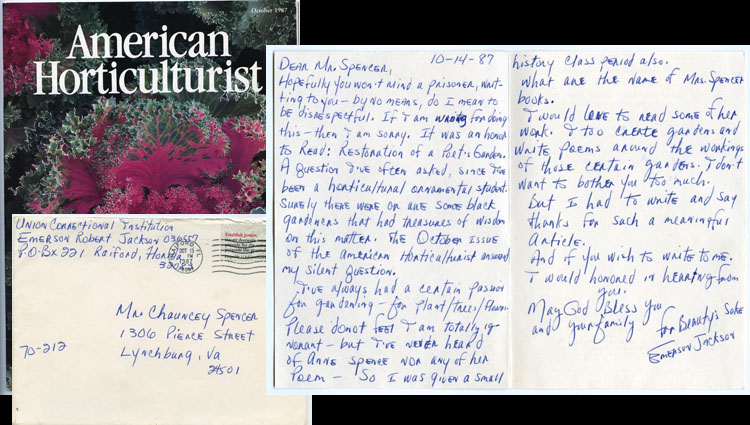 October 1987
American
Horticulturist
Union Correctional Institution
Emerson Robert Jackson
P.O. Bx 221 Raiford, Florida
OCT 15
PM
1987
Mr. Chauncey Spencer
1306 Pierce Street
Lynchburg, Va
24501
70-212
10-14-87
Dear Mr. Spencer,
Hopefully you won't mind a prisoner, wait-
ting to you – by no means, do I mean to
be disrespectful. If I am wrong for doing
this – then I am sorry. It was an honor
to Read: Restoration of a Poet's Garden.
A question I've often asked, since I've
been a horticultural ornamental student.
Surely there were or are some black
gardeners that had treasures of wisdom
on this matter. The October issue
of the American Horticulturist answered
my silent question.
I've always had a certain passion
for gardening – for plant/tree/flower.
Please do not feel I am totally ig-
norant – but I've never heard
of Anne Spence nor any of her
Poem – So I was given a small
history class period also.
What are the name of Mrs. Spencer
books.
I would love to read some of her
work. I too create gardens and
write poems around the workings
of those certain gardens. I don't
want to bother you too much.
But I had to write and say
thanks for such a meaningful
Article.
And if you wish to write to me.
I would honored in hearing from
you.
May God Bless you
and your family
For Beauty's Sake
Emerson Jackson